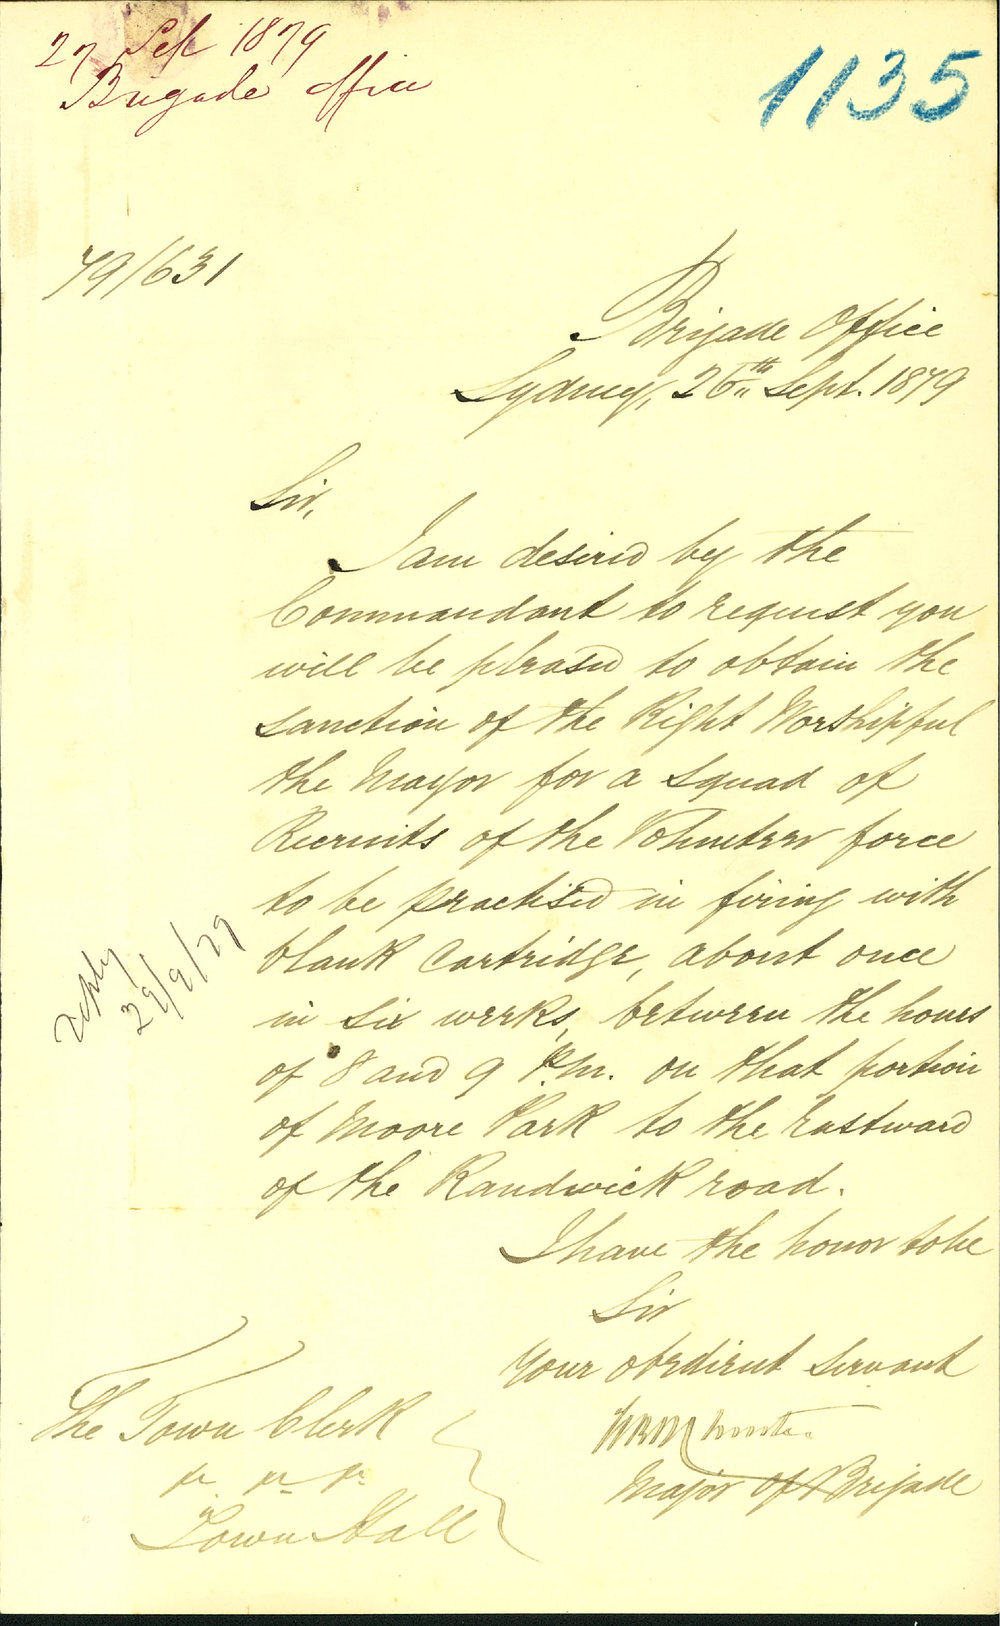 27 Sep 1879
Brigade Office
1135
79/631
Brigade Office
Sydney, 26th Sept. 1879
Sir,
I am desired by the
Commandant to request you
will be pleased to obtain the
sanction of the Right Worshipful
the Mayor for a squad of
Recruits of the Volunteer force
to be practised in firing with
blank cartridge, about once
in six weeks, between the hours
of 8 and 9 P.M. on that portion
of Moore Park to the Eastward
of the Randwick road.
reply
29/9/79
I have the honor to be
Sir
Your obedient servant
Major of Brigade
The Town Clerk
Town Hall